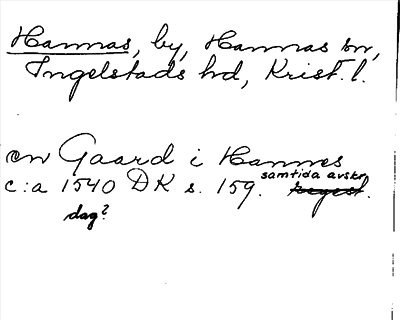 Hannas, by, Hannas sn,
Ingelstads hd, Krist. l.
en Gaard i Hannes
samtida avskr.
c:a 1540 DK s. 159. regest.
dag?